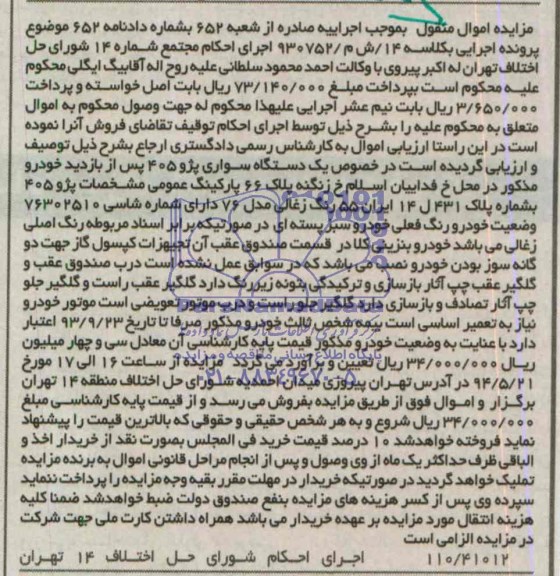 مزایده اموال منقول بموجب اجراییه صادره از شعبه ۶۵۲ بشماره دادنامه ۶۵۲ موضوع
پرونده اجرایی بکلاسه ۱۴/ش م/۹۳۰۷۵۲ اجرای احکام مجتمع شماره ۱۴ شورای حل
اختلاف تهران له اکبر پیروی با وکالت احمد محمود سلطانی علیه روح اله آقابیگ ایگلی محکوم
علیه محکوم است بپرداخت مبلغ ۷۳/۱۴۰/۰۰۰ ریال بابت اصل خواسته و پرداخت
۳/۶۵۰/۰۰۰ ریال بابت نیم عشر اجرایی علیهذا محکوم له جهت وصول محکوم به اموال
متعلق به محکوم علیه را بشرح ذیل توسط اجرای احکام توقیف تقاضای فروش آنرا نموده
است در این راستا ارزیابی اموال به کارشناس رسمی دادگستری ارجاع بشرح ذیل توصیف
و ارزیابی گردیده است در خصوص یک دستگاه سواری پژو ۴۰۵ پس از بازدید خودرو
مذکور در محل خ فداییان اسلام خ زنگنه پلاک ۶۶ پارکینگ عمومی مشخصات پژو ۴۰۵
بشماره پلاک ۴۳۱ ل ۱۴ ایران ۵۵ رنگ زغالی مدل ۷۶ دارای شماره شاسی ۷۶۳۰۲۵۱۰
وضعیت خودرو رنگ فعلی خودرو سبز پسته ای در صورتیکه برابر اسناد مربوطه رنگ اصلی
زغالی می باشد خودرو بنزینی کلا در قسمت صندوق عقب آن تجهیزات کپسول گاز جهت دو
گانه سوز بودن خودرو نصب می باشد که در سوابق عمل نشده است درب صندوق عقب و
گلگیر عقب چپ آثار بازسازی و ترکیدگی بتونه زیر رنگ دارد گلگیر عقب راست و گلگیر جلو
چپ آثار تصادف و بازسازی دارد گلگیر جلو راست و درب موتور تعویضی است موتور خودرو
نیاز به تعمیر اساسی است بیمه شخص ثالث خودرو مذکور صرفا تا تاریخ ۹۳/۹/۲۳ اعتبار
دارد با عنایت به وضعیت خودرو مذکور قیمت پایه کارشناسی آن معادل سی و چهار میلیون
ریال ۳۴/۰۰۰/۰۰۰ ریال تعیین و برآورد می گردد مزایده از ساعت ۱۶ الی ۱۷ مورخ
۹۴/۵/۲۱ در آدرس تهران پیروزی میدان احمدیه شورای حل اختلاف منطقه ۱۴ تهران
برگزار و اموال فوق از طریق مزایده بفروش می رسد و از قیمت پایه کارشناسی مبلغ
۳۴/۰۰۰/۰۰۰ ریال شروع و به هر شخص حقیقی و حقوقی که بالاترین قیمت را پیشنهاد
نماید فروخته خواهد شد ۱۰ درصد قیمت خرید فی المجلس بصورت نقد از خریدار اخذ و
الباقی ظرف حداکثر یک ماه از وی وصول و پس از انجام مراحل قانونی اموال به برنده مزایده
تملیک خواهد گردید در صورتیکه خریدار در مهلت مقرر بقیه وجه مزایده را پرداخت ننماید
سپرده وی پس از کسر هزینه های مزایده بنفع صندوق دولت ضبط خواهد شد ضمنا کلیه
هزینه انتقال مورد مزایده بر عهده خریدار می باشد همراه داشتن کارت ملی جهت شرکت
در مزایده الزامی است
۱۱۰/۴۱۰۱۲ اجرای احکام شورای حل اختلاف ۱۴ تهران